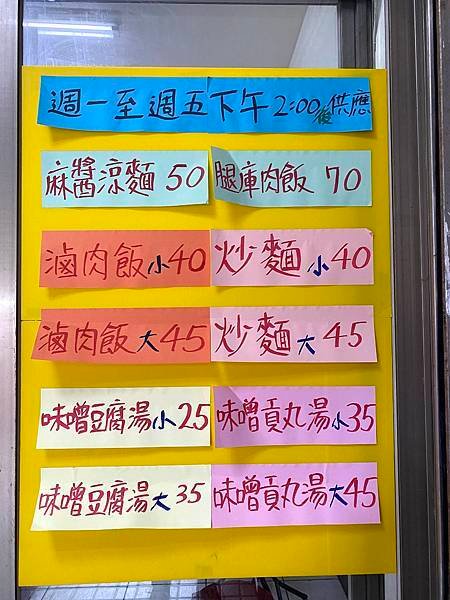 週一至週五下午2:00後供應
麻醬涼麵 50 腿庫肉飯 70
滷肉飯小40 炒麵小40
滷肉飯大45 炒麵大45
味噌豆腐湯小25 味噌貢丸湯小35
味噌豆腐湯大35 味噌貢丸湯大45